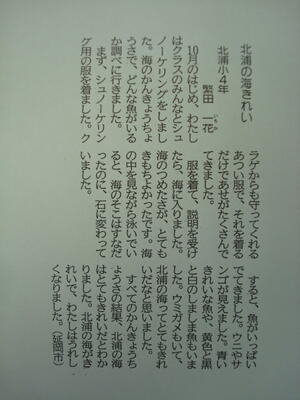 北浦の海きれい
北浦小4年
繁田 一花
10月のはじめ、わたし
はクラスのみんなとシュ
ノーケリングをしまし
た。海のかんきょうちょ
うさで、どんな魚がいる
か調べに行きました。
まず、シュノーケリン
グ用の服を着ました。ク
ラゲからも守ってくれる
あつい服で、それを着る
だけであせがたくさんで
てきました。
服を着て、説明を受け
たら、海に入りました。
海のつめたさが、とても
きもちよかったです。海
の中を見ながら泳いでい
ると、海のそこはすなだ
ったのに、石に変わって
いました。
すると、魚がいっぱい
でてきました。ウニやサ
ンゴが見えました。青い
きれいな魚や、黄色と黒
と白のしましま魚もいま
した。ウミガメもいて、
北浦の海ってとてもきれ
いだなと思いました。
すべてのかんきょうち
ょうさの結果、北浦の海
はとてもきれいだとわか
りました。北浦の海がき
れいで、わたしはうれし
くなりました。(延岡市)